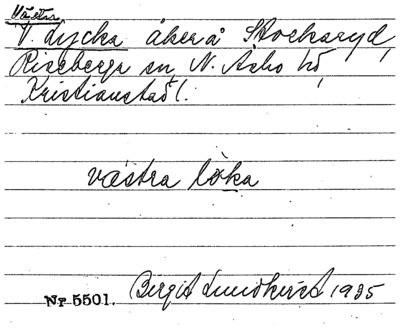 Västra
V. Lycka åker å Stocksryd,
Riseberga sn, N. Åsbo hd,
Kristianstad l.
västra löka
Nr 5501. Birgit Lundkvist 1935